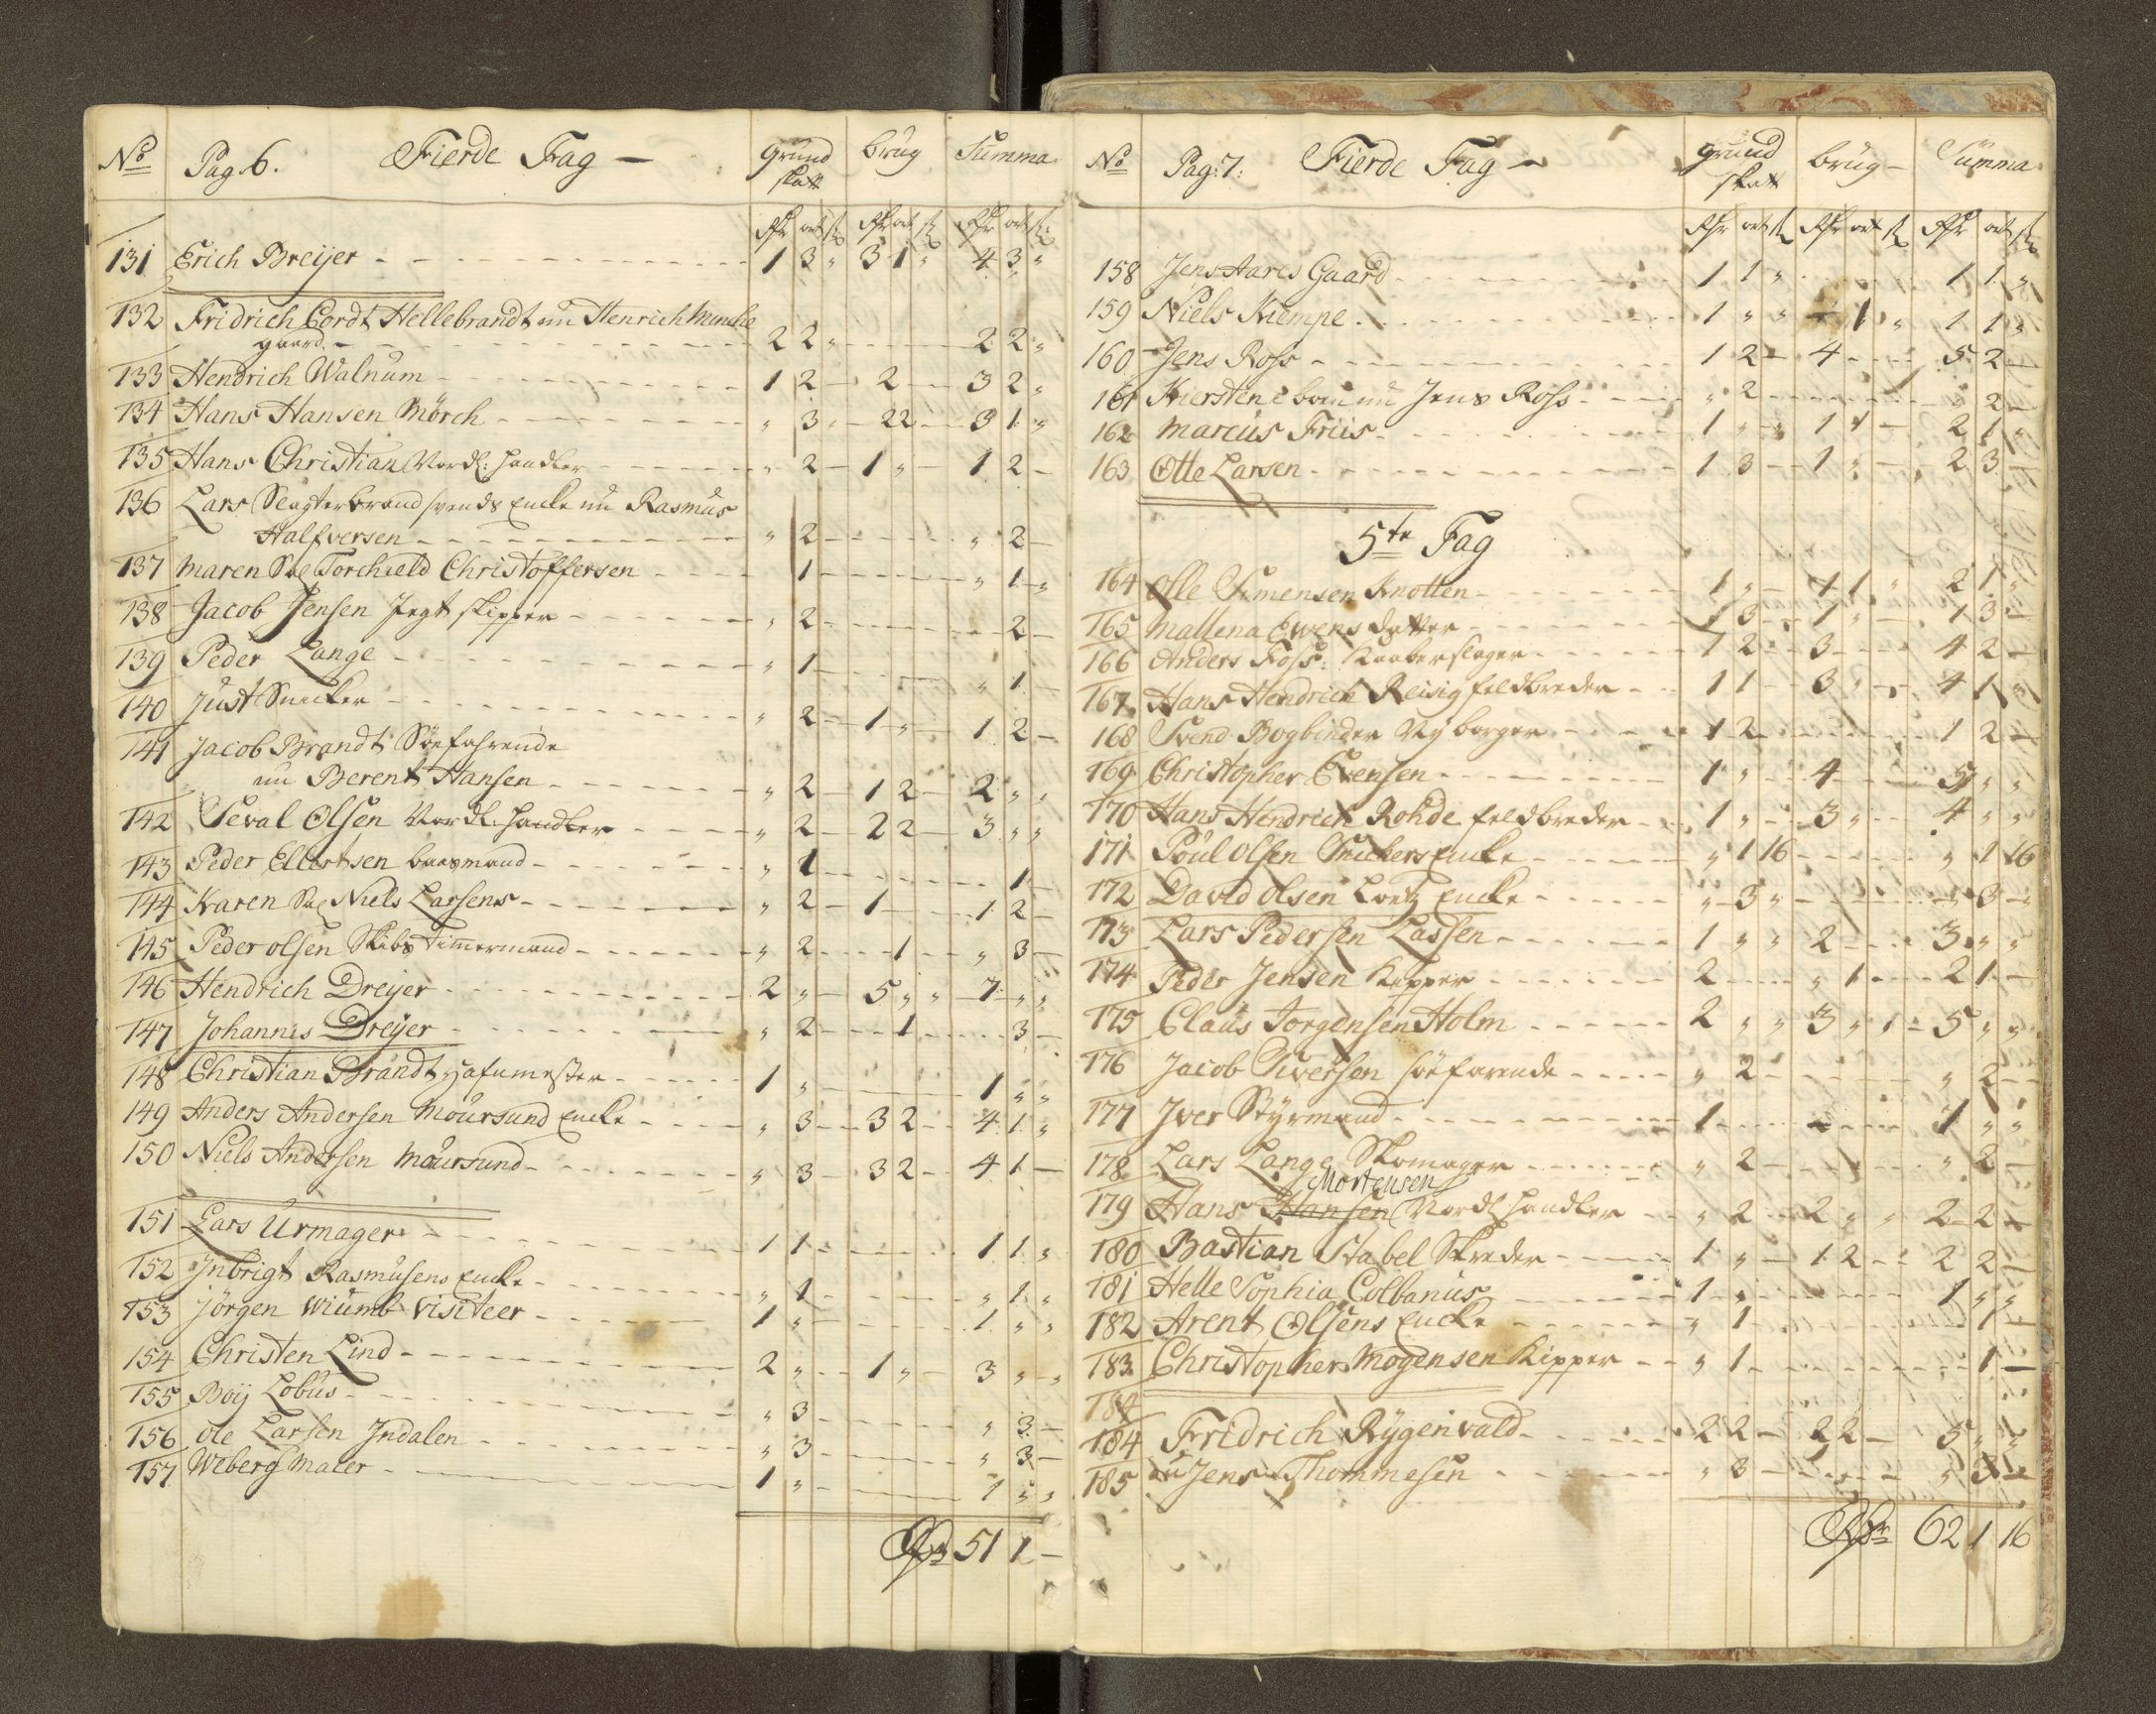 No Pag. 6. Fierde Fag — grund skatt brug Summa
Rdr ort s Rdr ort s Rdr ort s
131 Erich Breyer 1 3 " 3 1 " 4 3 "
132 Fridrich Cordt Hellebrandt nu Henrich Muncke
gaard 2 2 " 2 2 "
133 Hendrich Walnum 1 2 — 2 — 3 2 "
134 Hans Hansen Mörch " 3 " 2 2 3 1 "
135 Hans Christian Nordl: Handler " 2 — 1 " 1 2 —
136 Lars Slagterbrand svends Encke nu Rasmus
Halfversen " 2 — " 2 —
137 Maren Sal Torchield Christoffersen 1 — " 1 "
138 Jacob Jensen Jegt skipper " 2 — 2 —
139 Peder Lange " 1 — " 1 —
140 Just Snecker " 2 — 1 " 1 2 —
141 Jacob Brandt Söefahrende
nu Berent Hansen " 2 — 1 2 — 2 " "
142 Seval Olsen Nordl: Handler " 2 — 2 2 — 3 " "
143 Peder Ellertsen baasmand " 1 1 —
144 Karen Sal Niels Larsens " 2 — 1 — 1 2 —
145 Peder Olsen Skibs Timermand " 2 — 1 — " 3 —
146 Hendrich Dreyer 2 " — 5 " " 7 " "
147 Johannes Dreyer " 2 — 1 3 —
148 Christian Brandt Hafnmester 1 " 1 " "
149 Anders Andersen Moursund Encke " 3 — 3 2 — 4 1 "
150 Niels Andersen Moursund " 3 — 3 2 — 4 1 —
151 Lars Urmager 1 1 — 1 1 "
152 Inbrigt Rasmusens Encke " 1 — " 1 "
153 Jörgen Wiumb Visiteer 1 " 1 " "
154 Christen Lind 2 " — 1 " — 3 " "
155 Boij Lobus " 3 — " 3 —
156 Ole Larsen Indalen " 3 — " 3 —
157 Weberg Maler 1 " 1 " "
Rdr 51 1 —
No Pag: 7: Fierde Fag — grund skatt brug — Summa
Rdr ort s Rdr ort s Rdr ort s
158 Jens Aares Gaard 1 1 " 1 1 "
159 Niels Kiempe 1 " " — 1 " 1 1 "
160 Jens Ross 1 2 — 4 5 2 —
161 Kierstene nu Jens Ross " 2 " 2 —
162 Marcus Friis 1 " " 1 1 — 2 1 "
163 Otte Larsen 1 3 — 1 " — 2 3 —
5te Fag
164 Olle Simensen Knotten 1 " — 1 1 " 2 1 "
165 Mallena Ewens datter 3 — 1 " — 1 3 —
166 Anders Foss: Kaaberslager 1 2 3 4 2 —
167 Hans Hendrich Reisig feldbreder 1 1 — 3 " 4 1 "
168 Svend Bogbinder Ny borger 1 2 1 2 —
169 Christopher Evensen 1 " 4 5 " "
170 Hans Hendrich Rohde feldbreder 1 " 3 " 4 " "
171 Poul Olsen Snickers Encke " 1 16 " 1 16
172 David Olsen Encke " 3 " " 3 "
173 Lars Pedersen Lassen 1 " " 2 3 " "
174 Peder Jensen Kipper 2 " 1 2 1 —
175 Claus Jorgensen Holm 2 " " 3 " " 5 " "
176 Jacob Siversen söefarende " 2 — " 2 —
177 Iver Styrmand 1 1 " "
178 Lars Lange Skomager " 2 — " 2 —
Mortensen
179 Hans Hansen Nordl Handler " 2 — 2 " " 2 2 —
180 Bastian Stabel Skreder 1 " — 1 2 2 2 —
181 Helle Sophia Colbanus 1 " 1 " "
182 Arent Olsens Encke " 1 1 —
183 Christopher Mogensen Kipper " 1 1 —
184
184 Fridrich Rygenvald 2 2 — 2 2 — 5 " "
185 Jens Thommesen " 3 — " 3 —
Rdr 62 1 16